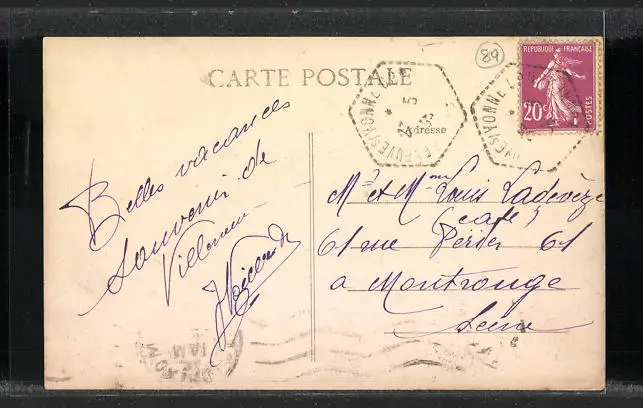 89
CARTE POSTALE
Adresse
RÉPUBLIQUE FRANÇAISE
20c
POSTES
YONNE
YONNE
Belles vacances
souvenir de
Mr et Mme Louis Ladevèze
(café)
61 rue Périer 61
a Montrouge
Seine